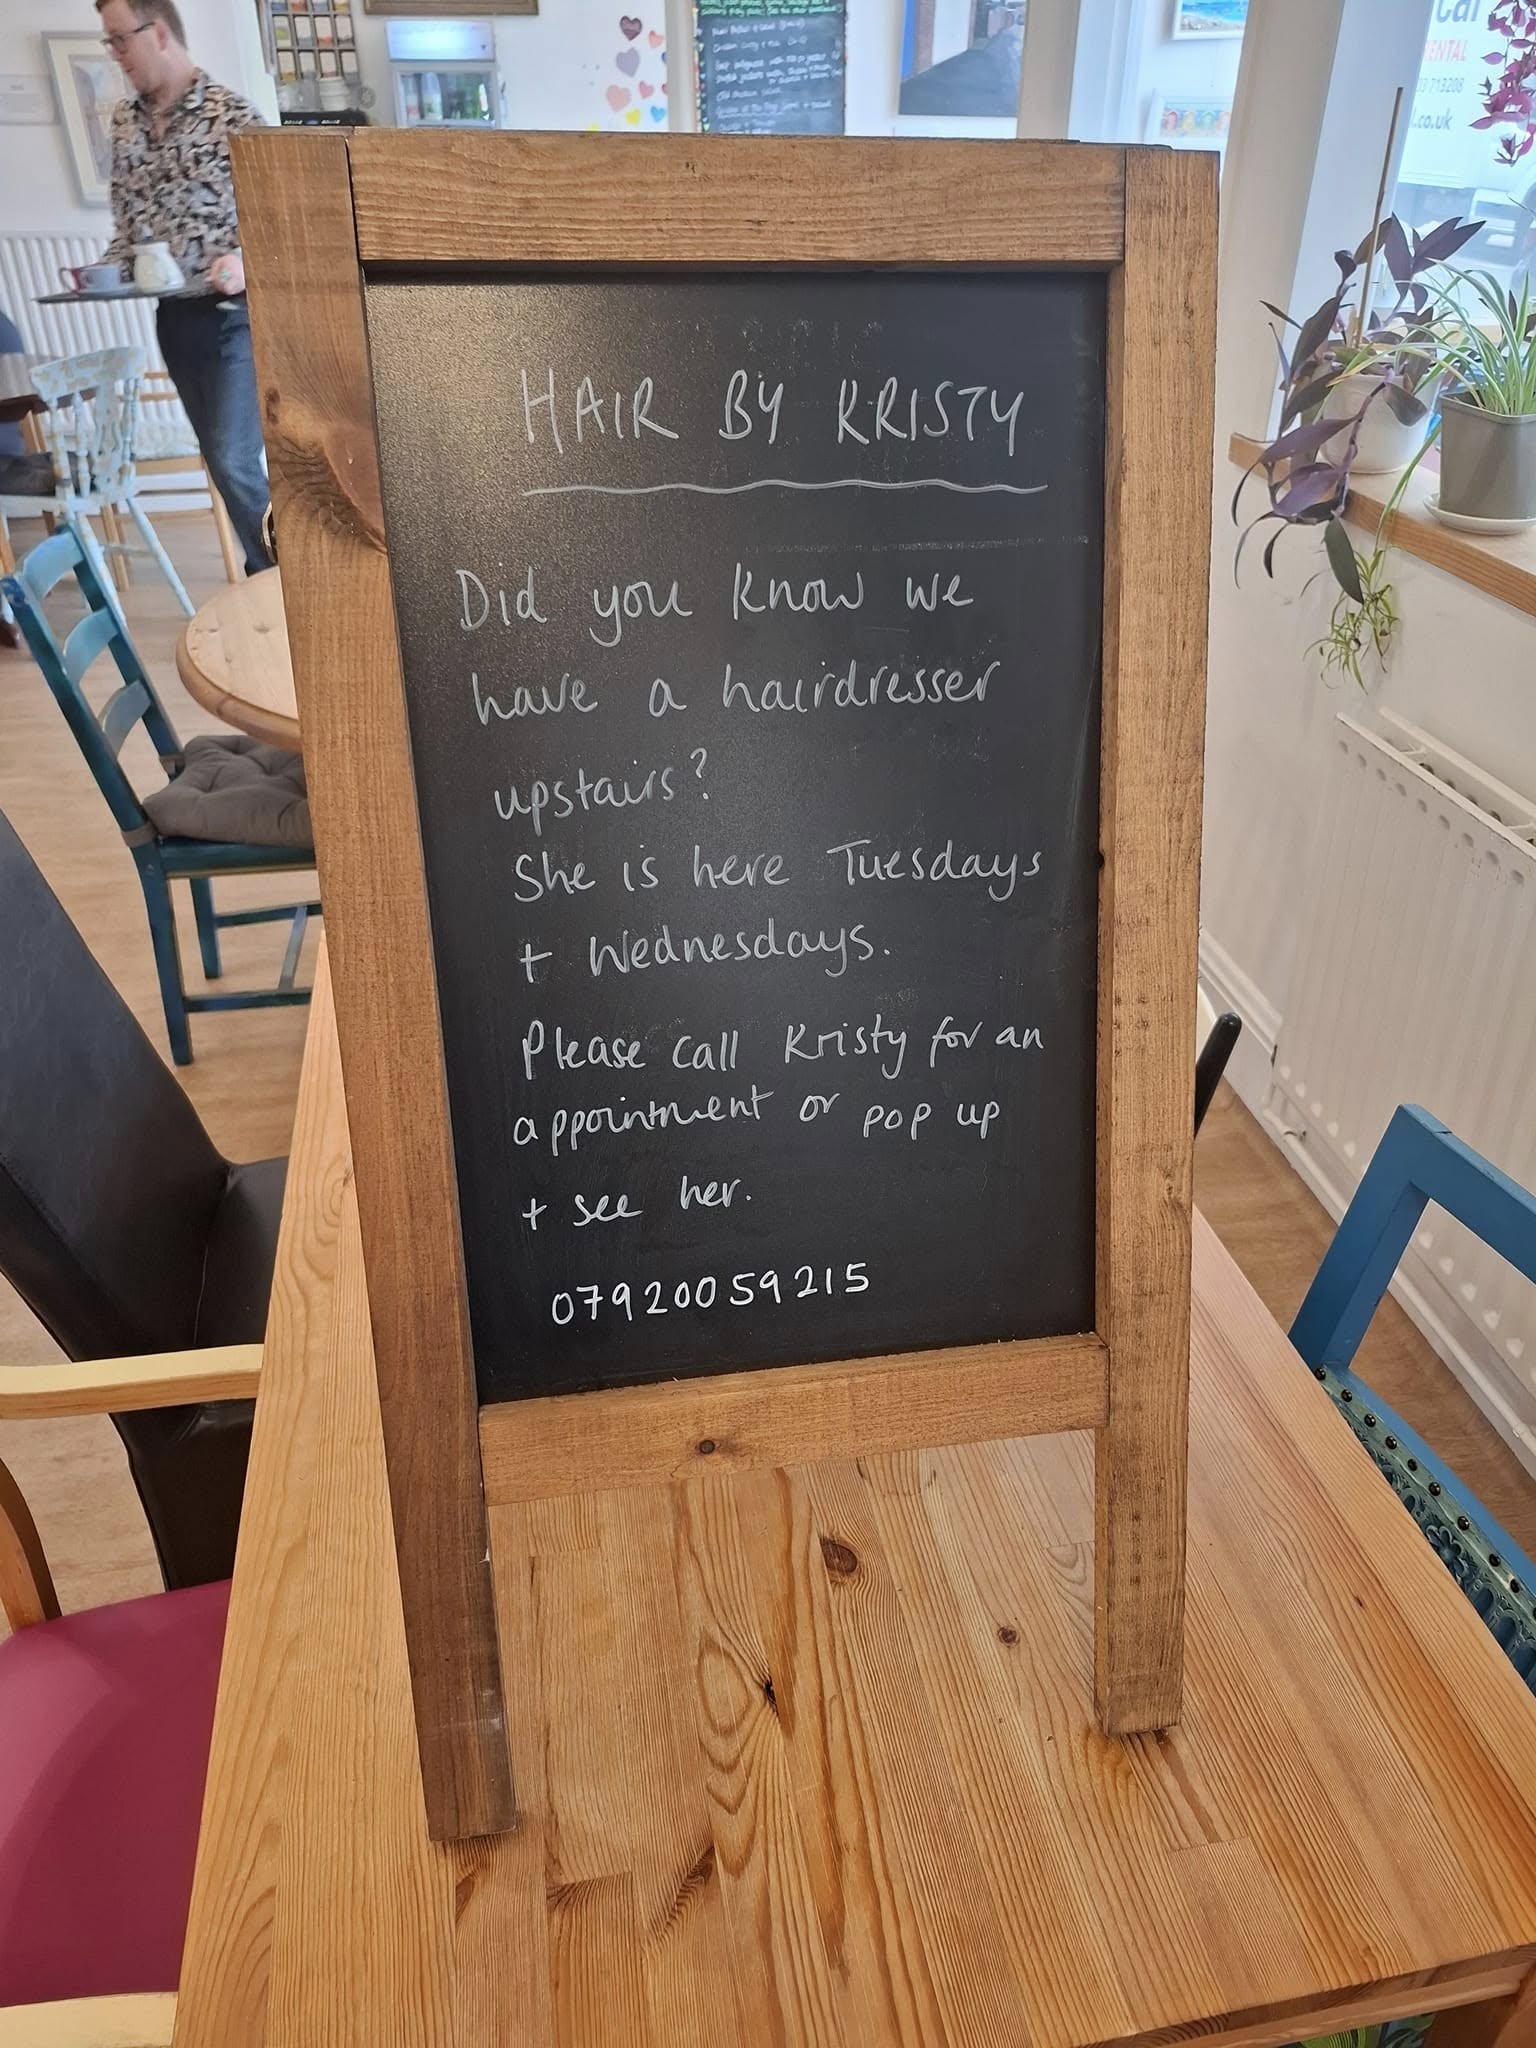 HAIR BY KRISTY
Did you know we
have a hairdresser
upstairs?
She is here Tuesdays
+ Wednesdays.
Please call Kristy for an
appointment or pop up
+ see her.
07920059215
cal
RENTAL
713208
.co.uk